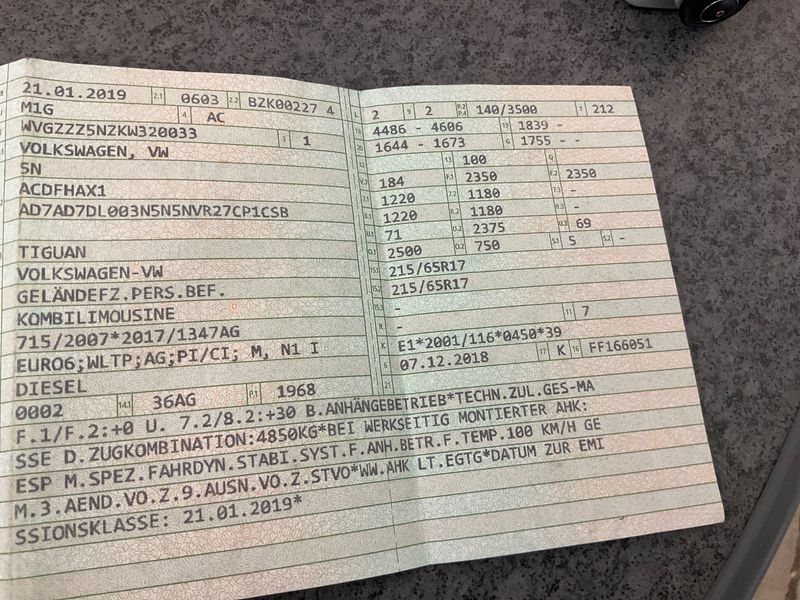 21.01.2019 2.1 0603 2.2 BZK00227 4
M1G 4 AC
WVGZZZ5NZKW320033 3 1
VOLKSWAGEN, VW
5N
ACDFHAX1
AD7AD7DL003N5N5NVR27CP1CSB
TIGUAN
VOLKSWAGEN-VW
GELÄNDEFZ.PERS.BEF.
KOMBILIMOUSINE
715/2007*2017/1347AG
EURO6;WLTP;AG;PI/CI; M, N1 I
DIESEL
0002 14.1 36AG P.1 1968
L 2 9 2 P.2 P.4 140/3500 T 212
18 4486 - 4606 19 1839 -
20 1644 - 1673 G 1755 - -
12 - 13 100 Q
V.7 184 F.1 2350 F.2 2350
7.1 1220 7.2 1180 7.3 -
8.1 1220 8.2 1180 8.3 -
U.1 71 U.2 2375 U.3 69
O.1 2500 O.2 750 S.1 5 S.2 -
15.1 215/65R17
15.2 215/65R17
15.3 -
R - 11 7
K E1*2001/116*0450*39
6 07.12.2018 17 K 16 FF166051
21
F.1/F.2:+0 U. 7.2/8.2:+30 B.ANHÄNGEBETRIEB*TECHN.ZUL.GES-MA
SSE D.ZUGKOMBINATION:4850KG*BEI WERKSEITIG MONTIERTER AHK:
ESP M.SPEZ.FAHRDYN.STABI.SYST.F.ANH.BETR.F.TEMP.100 KM/H GE
M.3.AEND.VO.Z.9.AUSN.VO.Z.STVO*WW.AHK LT.EGTG*DATUM ZUR EMI
SSIONSKLASSE: 21.01.2019*